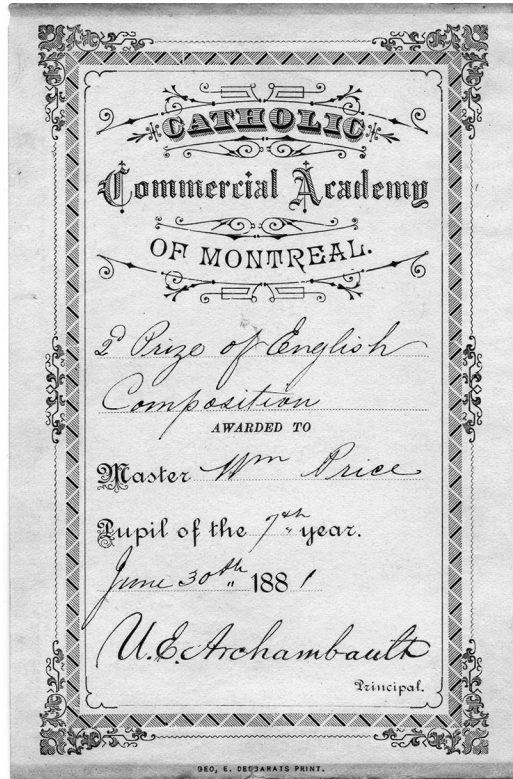 CATHOLIC
Commercial Academy
OF MONTREAL.
2d Prize of English
Composition
AWARDED TO
Master Wm Price
Pupil of the 7th year.
June 30th 1881
U. E. Archambault
Principal.
GEO, E. DESBARATS PRINT.